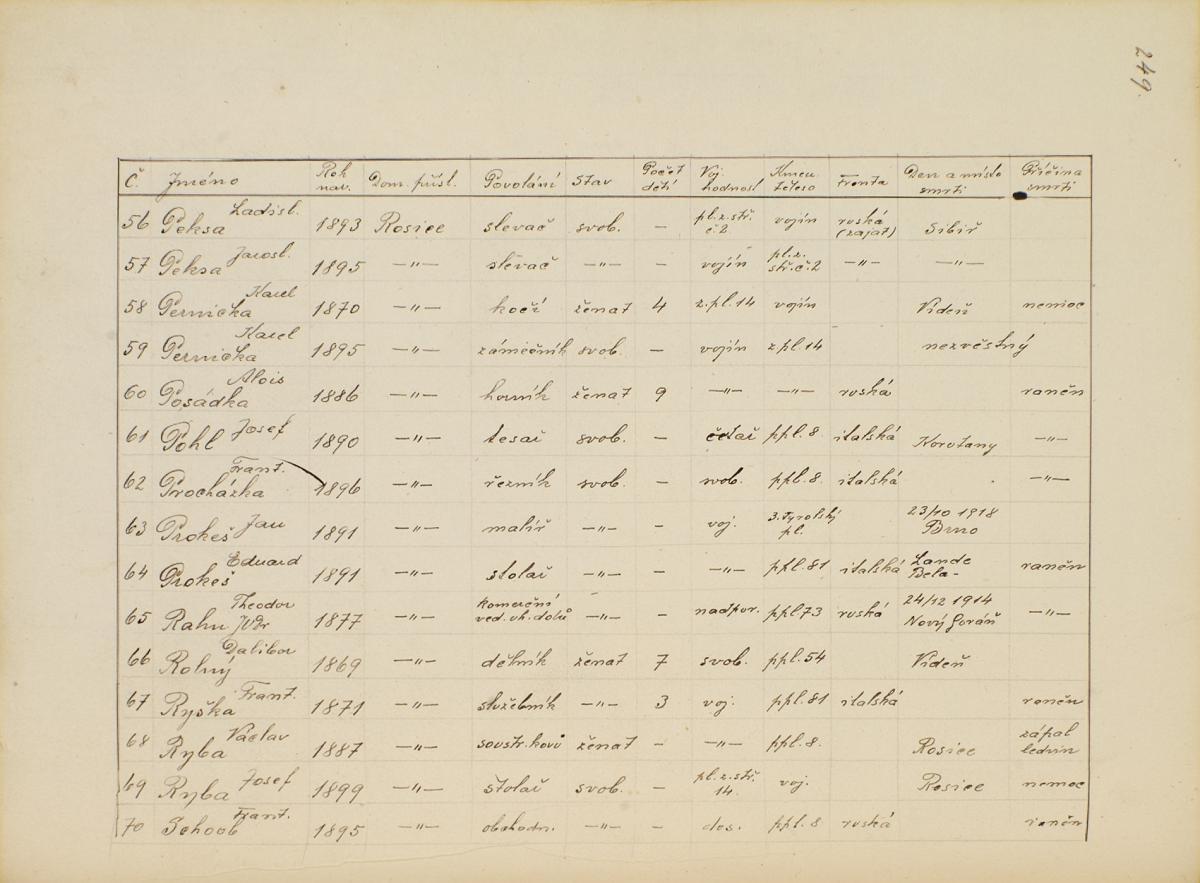 249.
Č. Jméno Rok nar. Dom. přísl. Povolání Stav Počet dětí Voj. hodnost Kmen. těleso Fronta Den a místo smrti Příčina smrti
56 Peksa Ladisl. 1893 Rosice slevač svob. — pl. z. stř. č. 2 vojín ruská (zajat) Sibiř
57 Peksa Jarosl. 1895 —„— slévač —„— — vojín pl. z. stř. č. 2 —„— —„—
58 Pernička Karel 1870 —„— kočí ženat 4 z. pl. 14 vojín Vídeň nemoc
59 Pernička Karel 1895 —„— zámečník svob. — vojín z. pl. 14 nezvěstný
60 Posádka Alois 1886 —„— horník ženat 9 —„— —„— ruská raněn
61 Pohl Josef 1890 —„— tesař svob. — četař ppl. 8. italská Korutany —„—
62 Procházka Frant. 1896 —„— řezník svob. — svob. ppl. 8. italská —„—
63 Prokeš Jan 1891 —„— malíř —„— — voj. 3. Tyrolský pl. 23/10 1918 Brno
64 Prokeš Eduard 1891 —„— stolař —„— — —„— ppl. 81 italská Lande Bela- raněn
65 Rahn Theodor JUDr 1877 —„— komerční ved. uh. dolů — nadpor. ppl 73 ruská 24/12 1914 Nový —„—
66 Rolný Dalibor 1869 —„— dělník ženat 7 svob. ppl. 54 Vídeň
67 Ryška Frant. 1871 —„— služebník —„— 3 voj. ppl. 81 italská raněn
68 Ryba Václav 1887 —„— soustr. kovů ženat — —„— ppl. 8. Rosice zápal ledvin
69 Ryba Josef 1899 —„— štolař svob. — pl. z. stř. 14. voj. Rosice nemoc
70 Schoob Frant. 1895 —„— obchodn. —„— — des. ppl. 8 ruská raněn